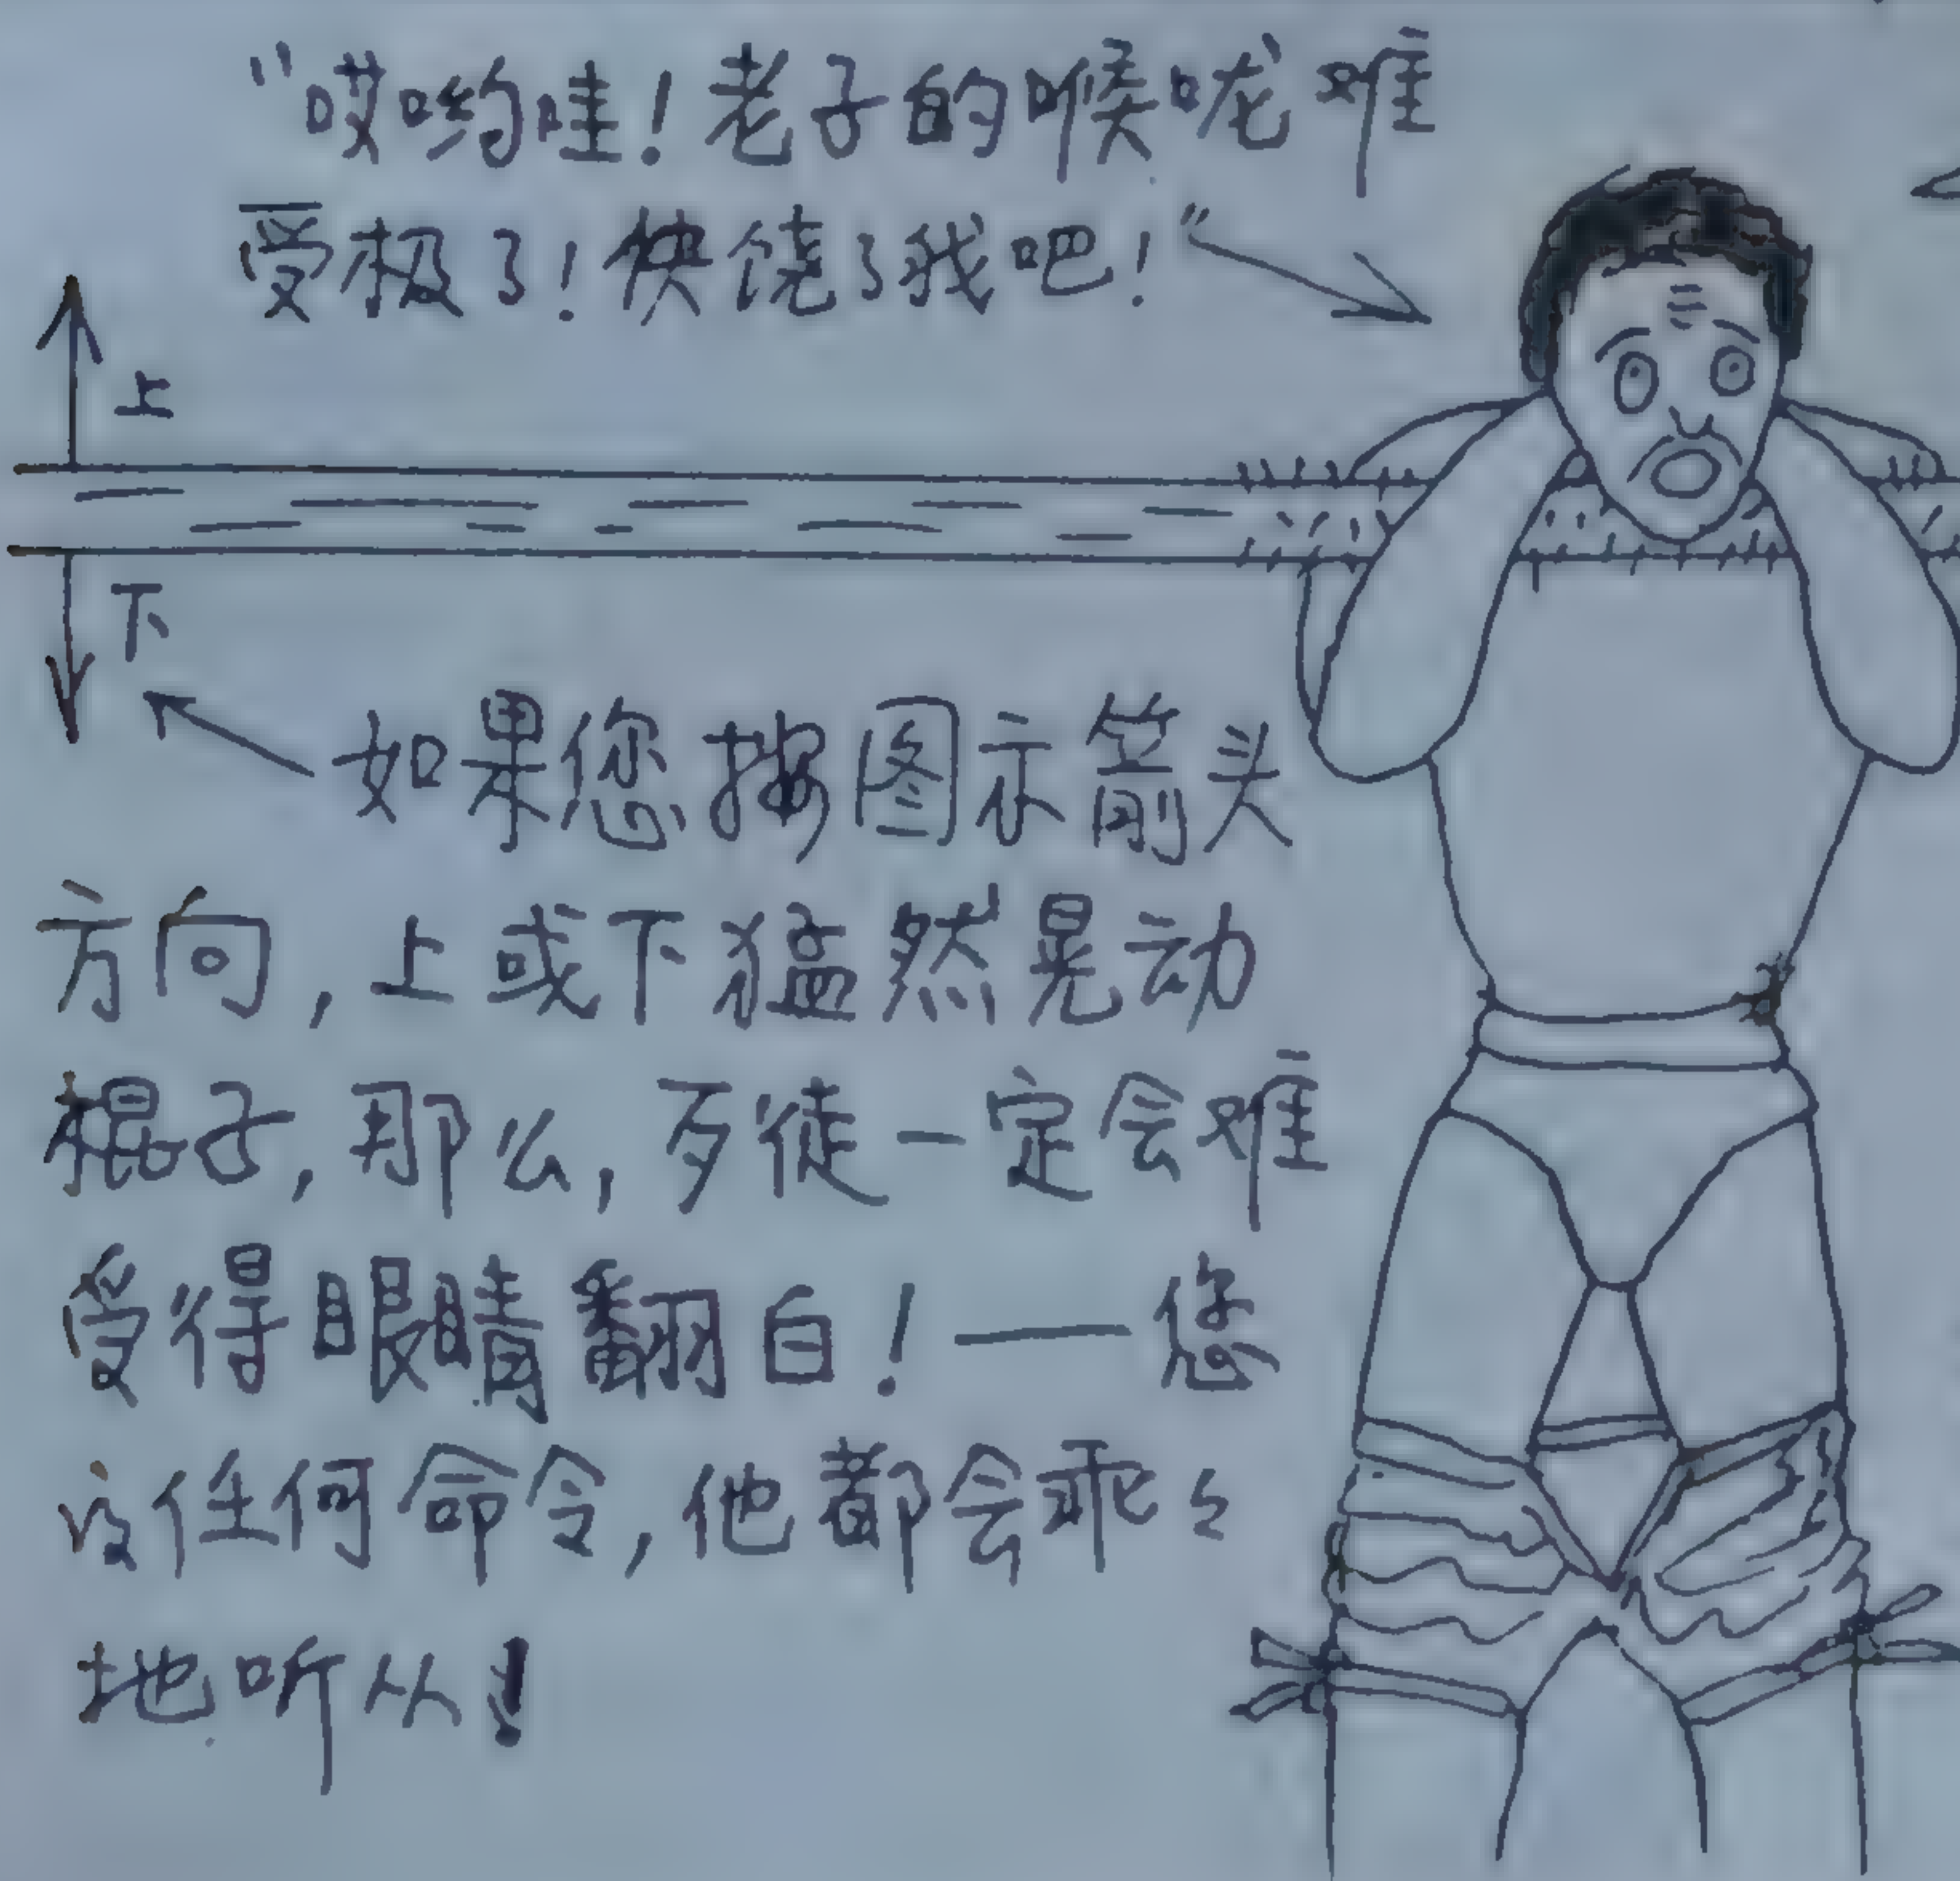 "哎哟哇！老子的喉咙难
受极了！快饶了我吧！"
上
下
如果您按图示箭头
方向，上或下猛然晃动
棍子，那么，歹徒一定会难
受得眼睛翻白！——您
的任何命令，他都会乖乖
地听从！